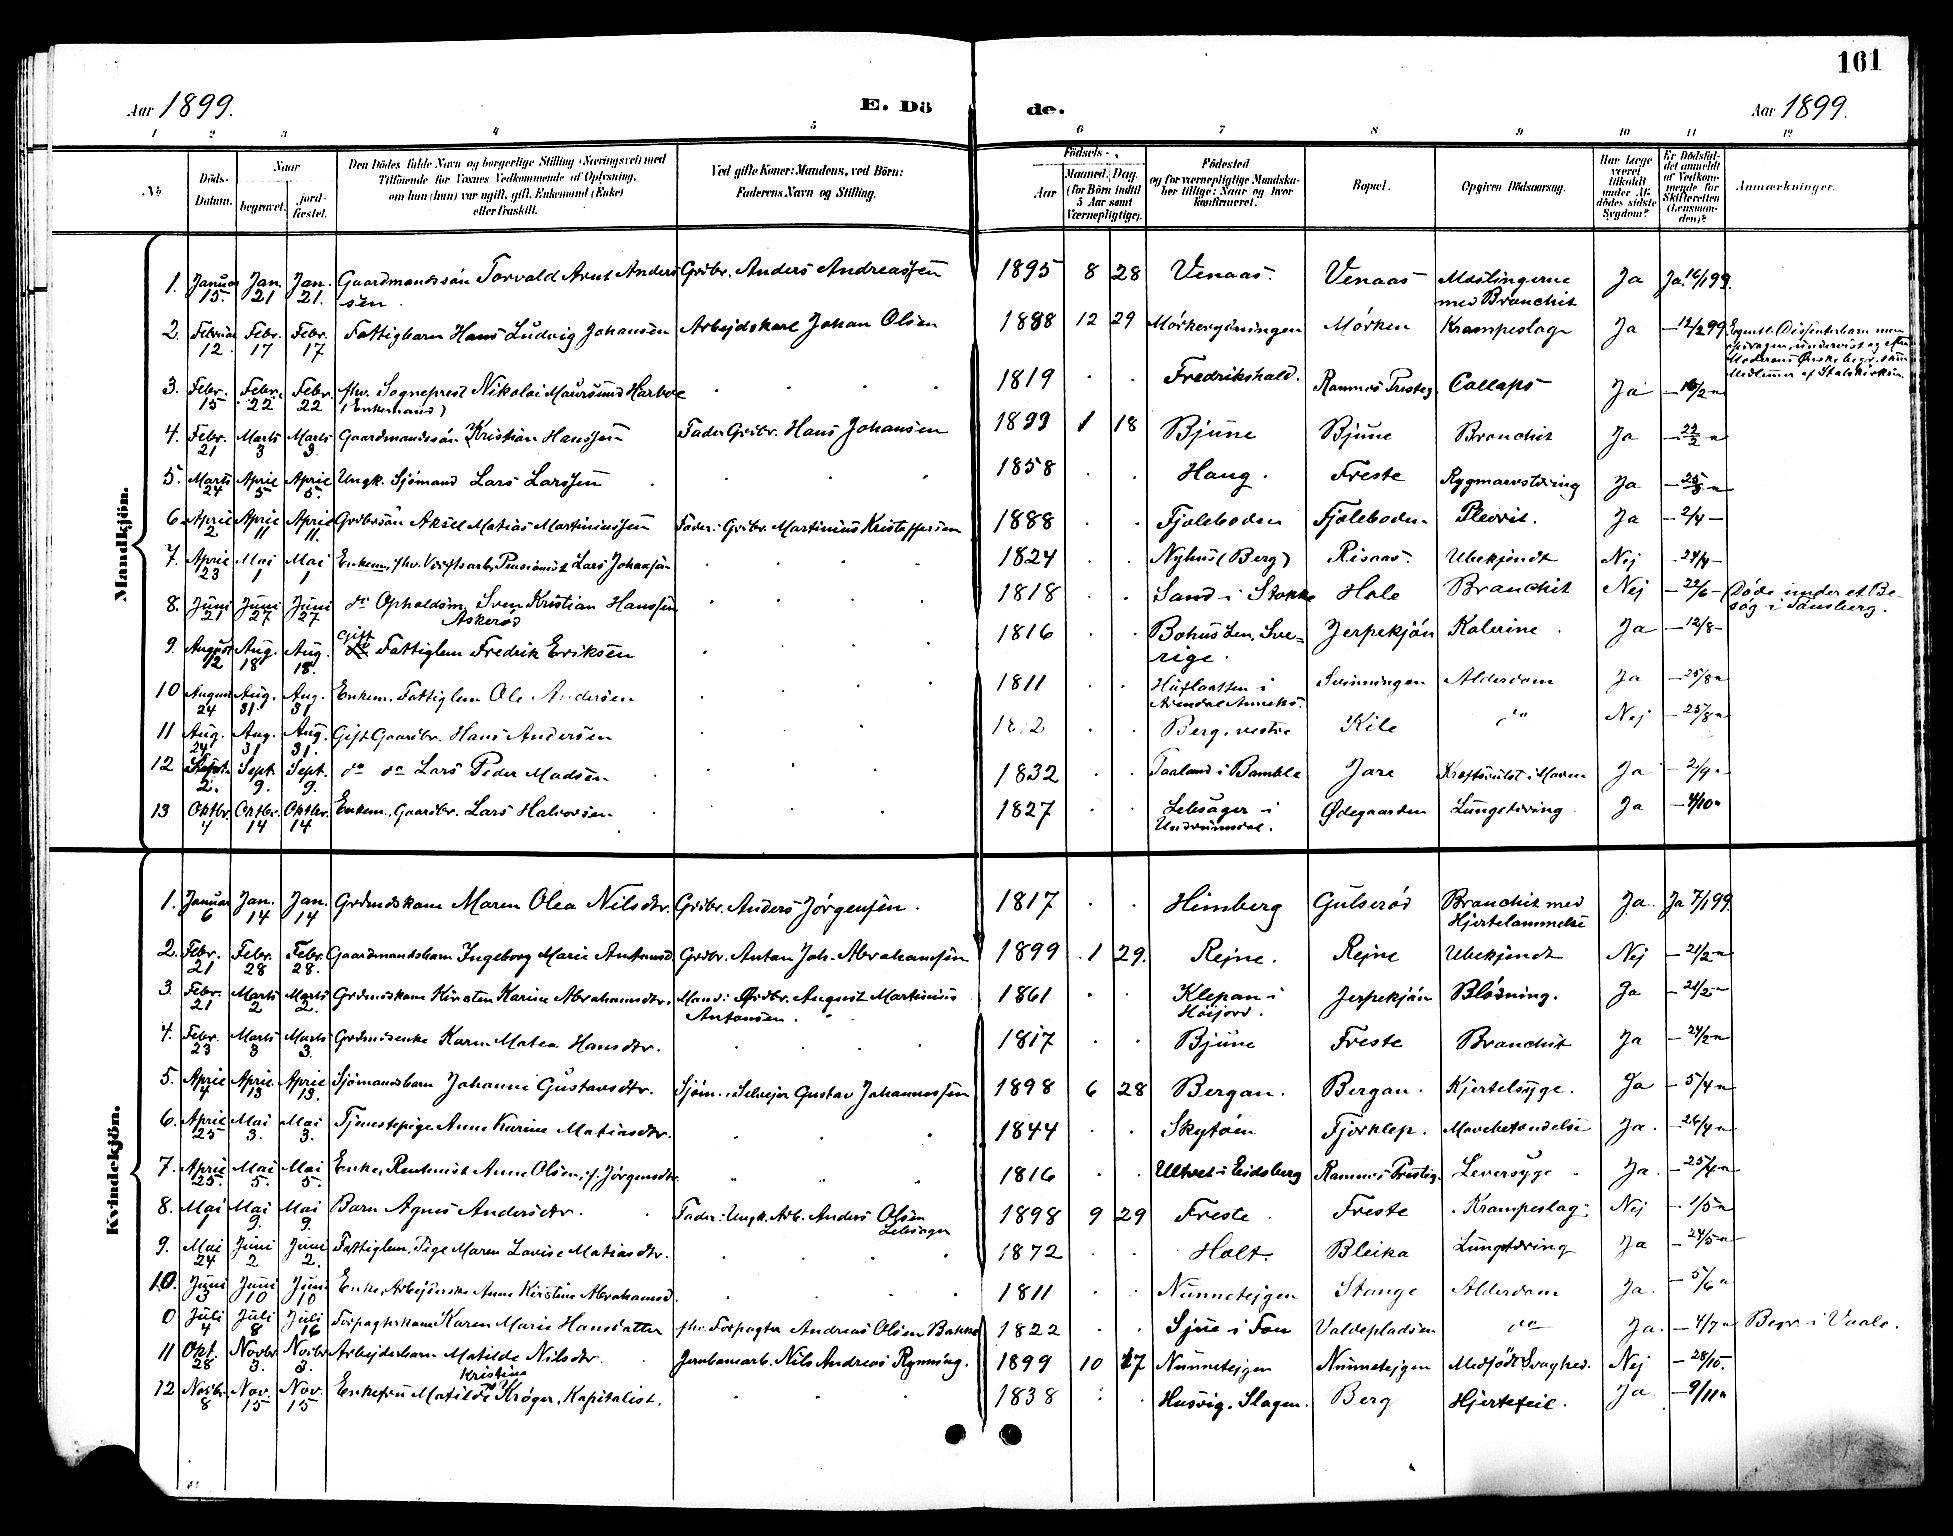 161
Aar 1899. E. Dö de. Aar 1899.
1 2 3 4 5 6 7 8 9 10 11 12
No Döds-Datum. Naar begravet. jordfæstet. Den Dödes fulde Navn og borgerlige Stilling (Næringsvei) med Tilföiende for Voxnes Vedkommende af Oplysning, om han (hun) var ugift, gift, Enkemand (Enke) eller fraskilt. Ved gifte Koner: Mandens, ved Börn: Faderens Navn og Stilling. Födsels- Aar Maaned. Dag. (for Börn indtil 5 Aar samt Værnepligtige). Födested og for værnepligtige Mandskaber tillige: Naar og hvor konfirmeret. Bopæl. Opgiven Dödsaarsag. Har Læge været tilkaldt under Afdödes sidste Sygdom? Er Dödsfaldet anmeldt af Vedkommende for Skifteretten (Lensmanden)? Anmærkninger.
Mandkjön.
1. Januar 15. Jan. 21 Jan. 21. Gaardmandssön Torvald Arnt Anderssen. Grdbr. Anders Andreassen 1895 8 28 Venaas. Venaas Mæslingerne med Bronchit Ja Ja. 16/1 99.
2. Februar 12. Febr. 17 Febr. 17 Fattigbarn Hans Ludvig Johansen Arbejdskarl Johan Olsen 1888 12 29 Mørkenygningen Mørken Krampeslag Ja – 12/2 99
3. Febr. 15 Febr. 22 Febr. 22 fhv. Sogneprest Nikolai Maursund Harboe (Enkemand) 1819 Fredrikshald. Ramnes Presteg. Collaps Ja – 16/2 "
4. Febr. 21 Marts 3 Marts 3. Gaardmandssön Kristian Hanssen Fader Grdbr. Hans Johansen 1899 1 18 Bjune Bjune Bronchit Ja – 22/2 "
5. Marts 24 April 5 April 5. Ungk. Sjömand Lars Larssen 1858 Haug. Freste Rygmarvstæring Ja – 25/3 "
6. April 2 April 11 April 11. Grdbrsön Aksel Matias Martiniussen Fader: Grdbr. Martinius Kristoffersen 1888 Fjæleboden Fjæleboden Plevrit. Ja – 2/4 –
7. April 23 Mai 1 Mai 1 Enkem., fhv. Værftsarb. Pensionist Lars Johansen 1824 Nyhus (Berg) Risaas. Ubekjendt Nej – 24/4 –
8. Juni 21 Juni 27 Juni 27 do Opholdsm. Sven Kristian Hanssen Askerød 1818 Sand i Stokke Hole Bronchit Nej – 22/6 – Døde under et Besøg i Tønsberg.
9 August 12 Aug. 18 Aug. 18. Gift Fattiglem Fredrik Eriksen 1816 Bohus Len, Sverige. Jerpekjön Kolerine Ja – 12/8 –
10 August 24 Aug. 31 Aug. 31 Enkem. Fattiglem Ole Andersen 1811 Svinningen Alderdom Ja – 25/8 "
11 Aug. 24 Aug. 31 Aug. 31. Gift Gaardbr. Hans Andersen Berg, vestre Kile do Nej – 25/8 "
12 Sept. 2. Sept. 9. Sept. 9. do do Lars Peder Madsen 1832 Taaland i Bamble Jare Kræftsvulst i Maven Ja – 2/9 "
13 Oktbr. 4 Oktbr. 14 Oktbr. 14 Enkem., Gaardbr. Lars Halvorsen 1827 Lebsager i Undrumsdal. Ødegaarden Lungetæring Ja – 4/10 "
Kvindekjön.
1. Januar 6 Jan. 14 Jan. 14 Grdmdskone Maren Olea Nilsdtr. Grdbr. Anders Jörgensen. 1817 Himberg Gulserød Bronchit med Hjertelammelse Ja. Ja 7/1 99.
2. Febr. 21 Febr. 28 Febr. 28. Gaardmandsbarn Ingeborg Marie Antonsd. Grdbr. Anton Joh. Abrahamsen 1899 1 29. Rejne. Rejne Ubekjendt Nej – 21/2 "
3. Febr. 21 Marts 2 Marts 2. Grdmdskone Kirsten Karine Abrahamsdtr. Mand: Grdbr. August Martinius Antonsen. 1861 Klepan i Höijord. Jerpekjön Blödning. Ja – 21/2 –
4. Febr. 23 Marts 3 Marts 3. Grdmdsenke Karen Matea Hansdtr. 1817 Bjune Freste Bronchit Ja – 24/2 "
5. April 4 April 13 April 13. Sjömandsbarn Johanne Gustavsdtr. Sjöm., Selvejer Gustav Johannessen 1898 6 28 Bergan. Bergan. Kjertelsyge. Ja – 5/4 "
6. April 25 Mai 3. Mai 3. Tjenestepige Anne Karine Matiasdtr. 1844 Skytøen Fjørklep. Mavebetændelse Ja. – 26/4 "
7. April 25. Mai 5. Mai 5. Enke, Rentenist Anne Olsen, f. Jørgensdtr. 1816 Ultvet i Eidsberg Ramnes Presteg. Leversyge Ja. – 25/4 "
8. Mai 1 Mai 9. Mai 9. Barn Agnes Andersdtr. Fader: Ungk. Arb. Anders Olsen Lebsager 1898 9 29 Freste Freste Krampeslag. Nej – 1/5 "
9. Mai 24 Juni 2 Juni 2. Fattiglem, Pige Maren Lovise Matiasdtr. 1872 Holt. Bleika Lungetæring Ja – 24/5 "
10. Juni 3 Juni 10 Juni 10 Enke, Arbejderske Anne Kirstine Abrahamsd. 1811 Nunnetejgen Stange Alderdom Ja. – 5/6 "
0 Juli 4 Juli 8 Juli 16 Forpagterkone Karen Marie Hansdatter fhv. Forpagter Andreas Olsen Bakke 1822 Sjue i Fon Valdepladsen do Ja. – 4/7 " Begr. i Vaale.
11 Okt. 28 Novbr. 3. Novbr. 3. Arbejderbarn Matilde Nilsdtr. Jernbanearb. Nils Andreas Rynning. 1899 10 17 Nunnetejgen Nunnetejgen Medfödt Svaghed. Nej – 28/10.
12 Novbr. 8 Nov. 15 Nov. 15 Enkefru Matilde Kristina Krøger, Kapitalist. 1838 Husvig, Slagen. Berg Hjertefeil. Ja. – 9/11 "